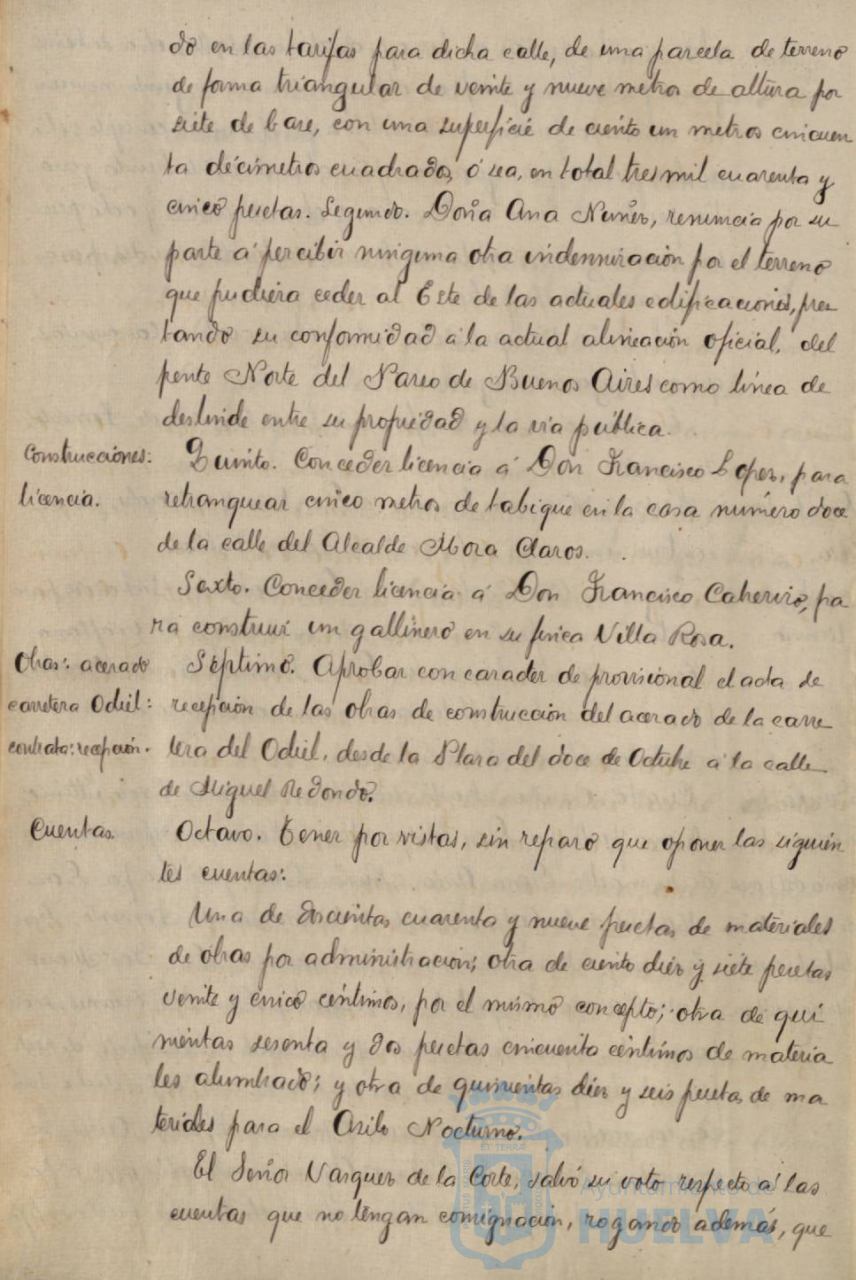 do en las tarifas para dicha calle, de una parcela de terreno
de forma triangular de veinte y nueve metros de altura por
siete de base, con una superficie de ciento un metros cincuen
ta decímetros cuadrados, ó sea, en total tres mil cuarenta y
cinco pesetas. Segundo. Doña Ana Nuñez, renuncia por su
parte á percibir ninguna otra indemnización por el terreno
que pudiera ceder al Este de las actuales edificaciones, pres
tando su conformidad á la actual alineación oficial, del
frente Norte del Paseo de Buenos Aires como línea de
deslinde entre su propiedad y la via pública.
Construcciones:
licencia.
Quinto. Conceder licencia á Don Francisco Lopez, para
retranquear cinco metros de tabique en la casa número doce
de la calle del Alcalde Mora Claros.
Sexto. Conceder licencia á Don Francisco, pa
ra construir un gallinero en su finca Villa Rosa.
Obras: acerado
carretera Odiel:
contrata: recepción.
Séptimo. Aprobar con caracter de provisional el acta de
recepción de las obras de construcción del acerado de la carre
tera del Odiel, desde la Plaza del doce de Octubre á la calle
de Miguel Redondo.
Cuentas.
Octavo. Tener por vistas, sin reparo que oponer las siguien
tes cuentas:
Una de doscientas cuarenta y nueve pesetas de materiales
de obras por administración; otra de ciento diez y siete pesetas
veinte y cinco céntimos, por el mismo concepto; otra de qui
nientas sesenta y dos pesetas cincuenta céntimos de materia
les alumbrado; y otra de quinientas diez y seis pesetas de ma
teriales para el Asilo Nocturno.
El Señor Vazquez de la Corte, salvó su voto respecto á las
cuentas que no tengan consignación, rogando además, que
Ayuntamiento de
HUELVA